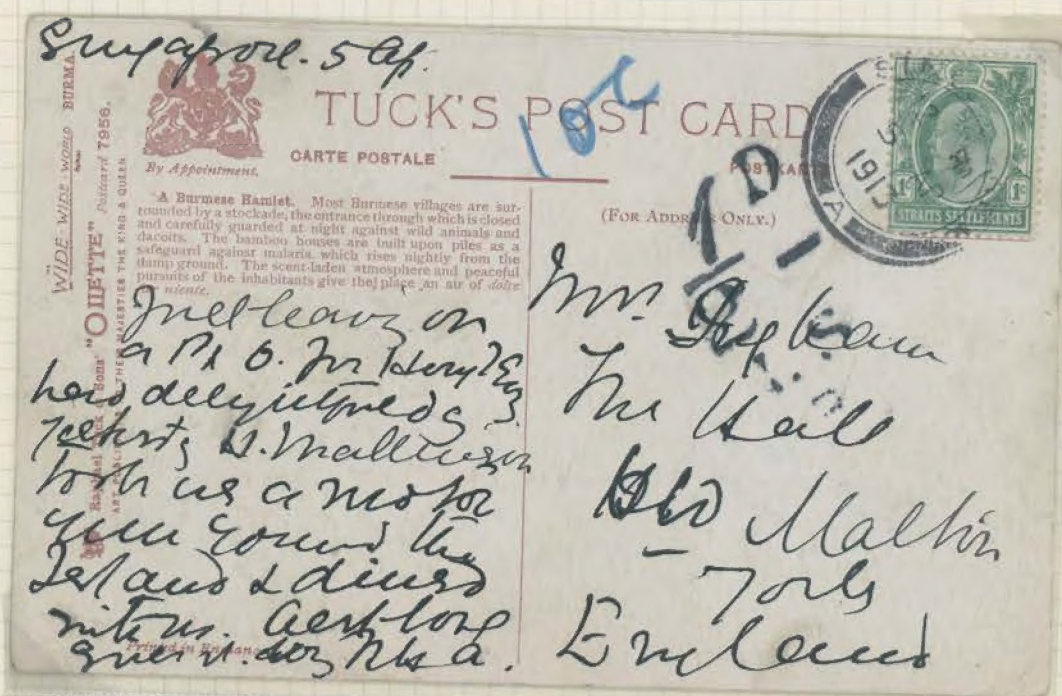 Singapore. 5 Ap.
"WIDE-WIDE-WORLD" BURMA.
"OILETTE" Postcard 7956.
Raphael Tuck & Sons'
ART PUBLISHERS TO THEIR MAJESTIES THE KING & QUEEN
By Appointment.
TUCK'S POST CARD
CARTE POSTALE
POSTKARTE
(FOR ADDRESS ONLY.)
10c
1D
STRAITS SETTLEMENTS
1c 1c
A Burmese Hamlet. Most Burmese villages are sur-
rounded by a stockade, the entrance through which is closed
and carefully guarded at night against wild animals and
dacoits. The bamboo houses are built upon piles as a
safeguard against malaria which rises nightly from the
damp ground. The scent-laden atmosphere and peaceful
pursuits of the inhabitants give the place an air of dolce
far niente.
Just leaving on
a P & O. for Hong Kong
had delightful day
yesterday H. Mallinson
took us a motor
run round the
Island & dined
with us. Best love
Printed in England
Mrs. Ingham
The Hall
Old Malton
Yorks
England